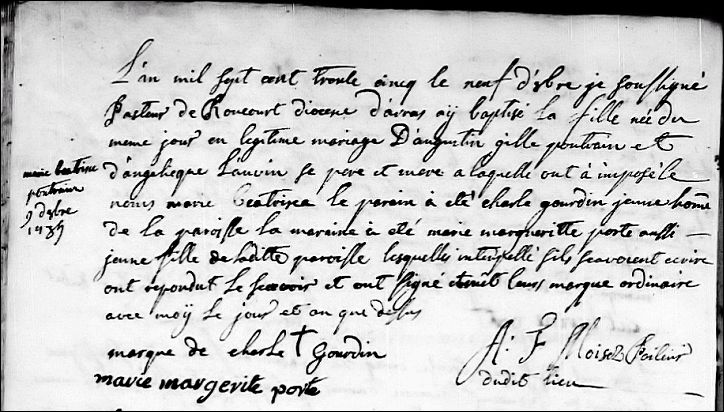 L'an mil sept cent trente cincq le neuf d'xbre je soussigné
Pasteur de Roucourt diocese d'aras aÿ baptisé la fille née du
meme jour en legitime mariage D'augustin gille poutrain et
d'angelique Lauvin se pere et mere a laquelle ont à imposé le
nom marie Beatrice le parain à été charle gourdin jeune home
de la paroisse la maraine à été marie margueritte porte aussi
jeune fille de laditte paroisse lesquelles interpellé sils scavoient ecrire
ont repondut le scavoir et ont signé et mit leurs marque ordinaire
avec moÿ le jour et an que dessus
marie beatrice
poutrain
9 dxbre
1735
marque de charle † Gourdin
marie margerite porte
A: F Moisez
dudit lieu